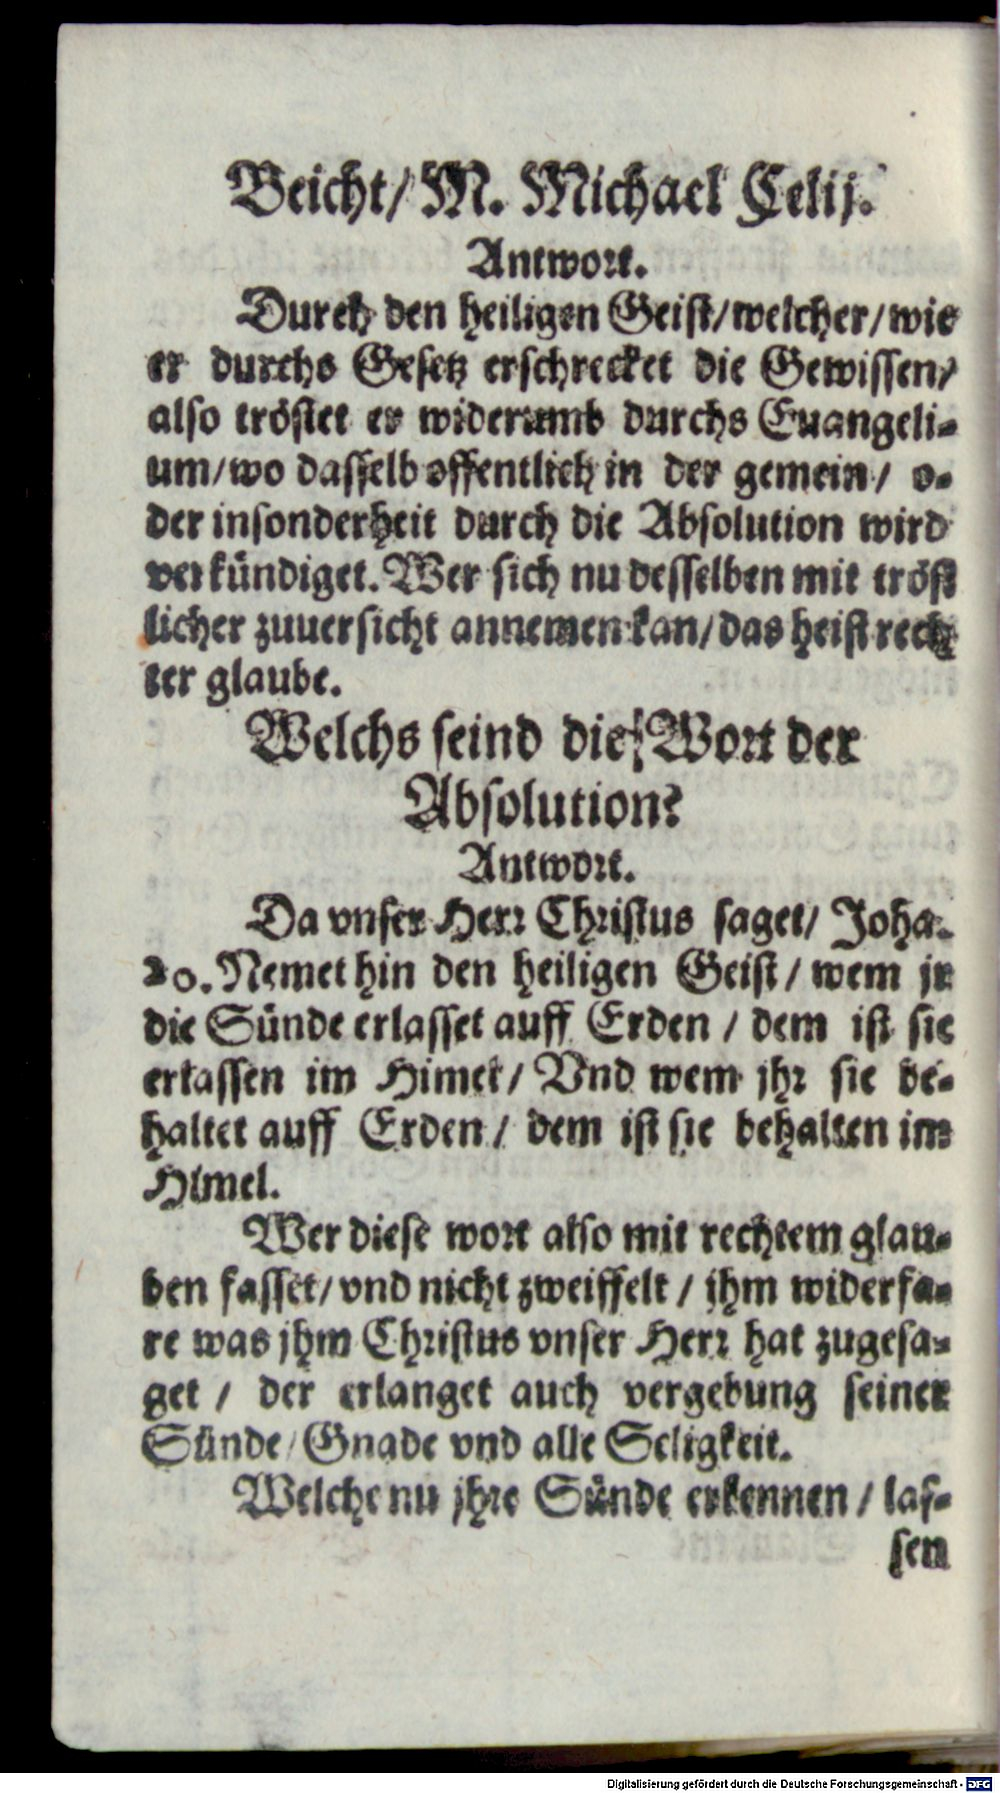 Beicht/ M. Michael Celij.
Antwort.
Durch den heiligen Geist/welcher/wie
er durchs Gesetz erschrecket die Gewissen/
also tröstet er widerumb durchs Euangeli-
um/wo dasselb offentlich in der gemein/ o-
der insonderheit durch die Absolution wird
verkündiget. Wer sich nu desselben mit tröst
licher zuuersicht annemen kan/das heist rech
ter glaube.
Welchs seind die Wort der
Absolution?
Antwort.
Da vnser Herr Christus saget/ Joha.
20. Nemet hin den heiligen Geist/ wem jr
die Sünde erlasset auff Erden / dem ist sie
erlassen im Himel/ Vnd wem jhr sie be-
haltet auff Erden / dem ist sie behalten im
Himel.
Wer diese wort also mit rechtem glau-
ben fasset/ vnd nicht zweiffelt / jhm widerfa-
re was jhm Christus vnser Herr hat zugesa-
get / der erlanget auch vergebung seiner
Sünde/ Gnade vnd alle Seligkeit.
Welche nu jhre Sünde erkennen / las-
sen
Digitalisierung gefördert durch die Deutsche Forschungsgemeinschaft - DFG